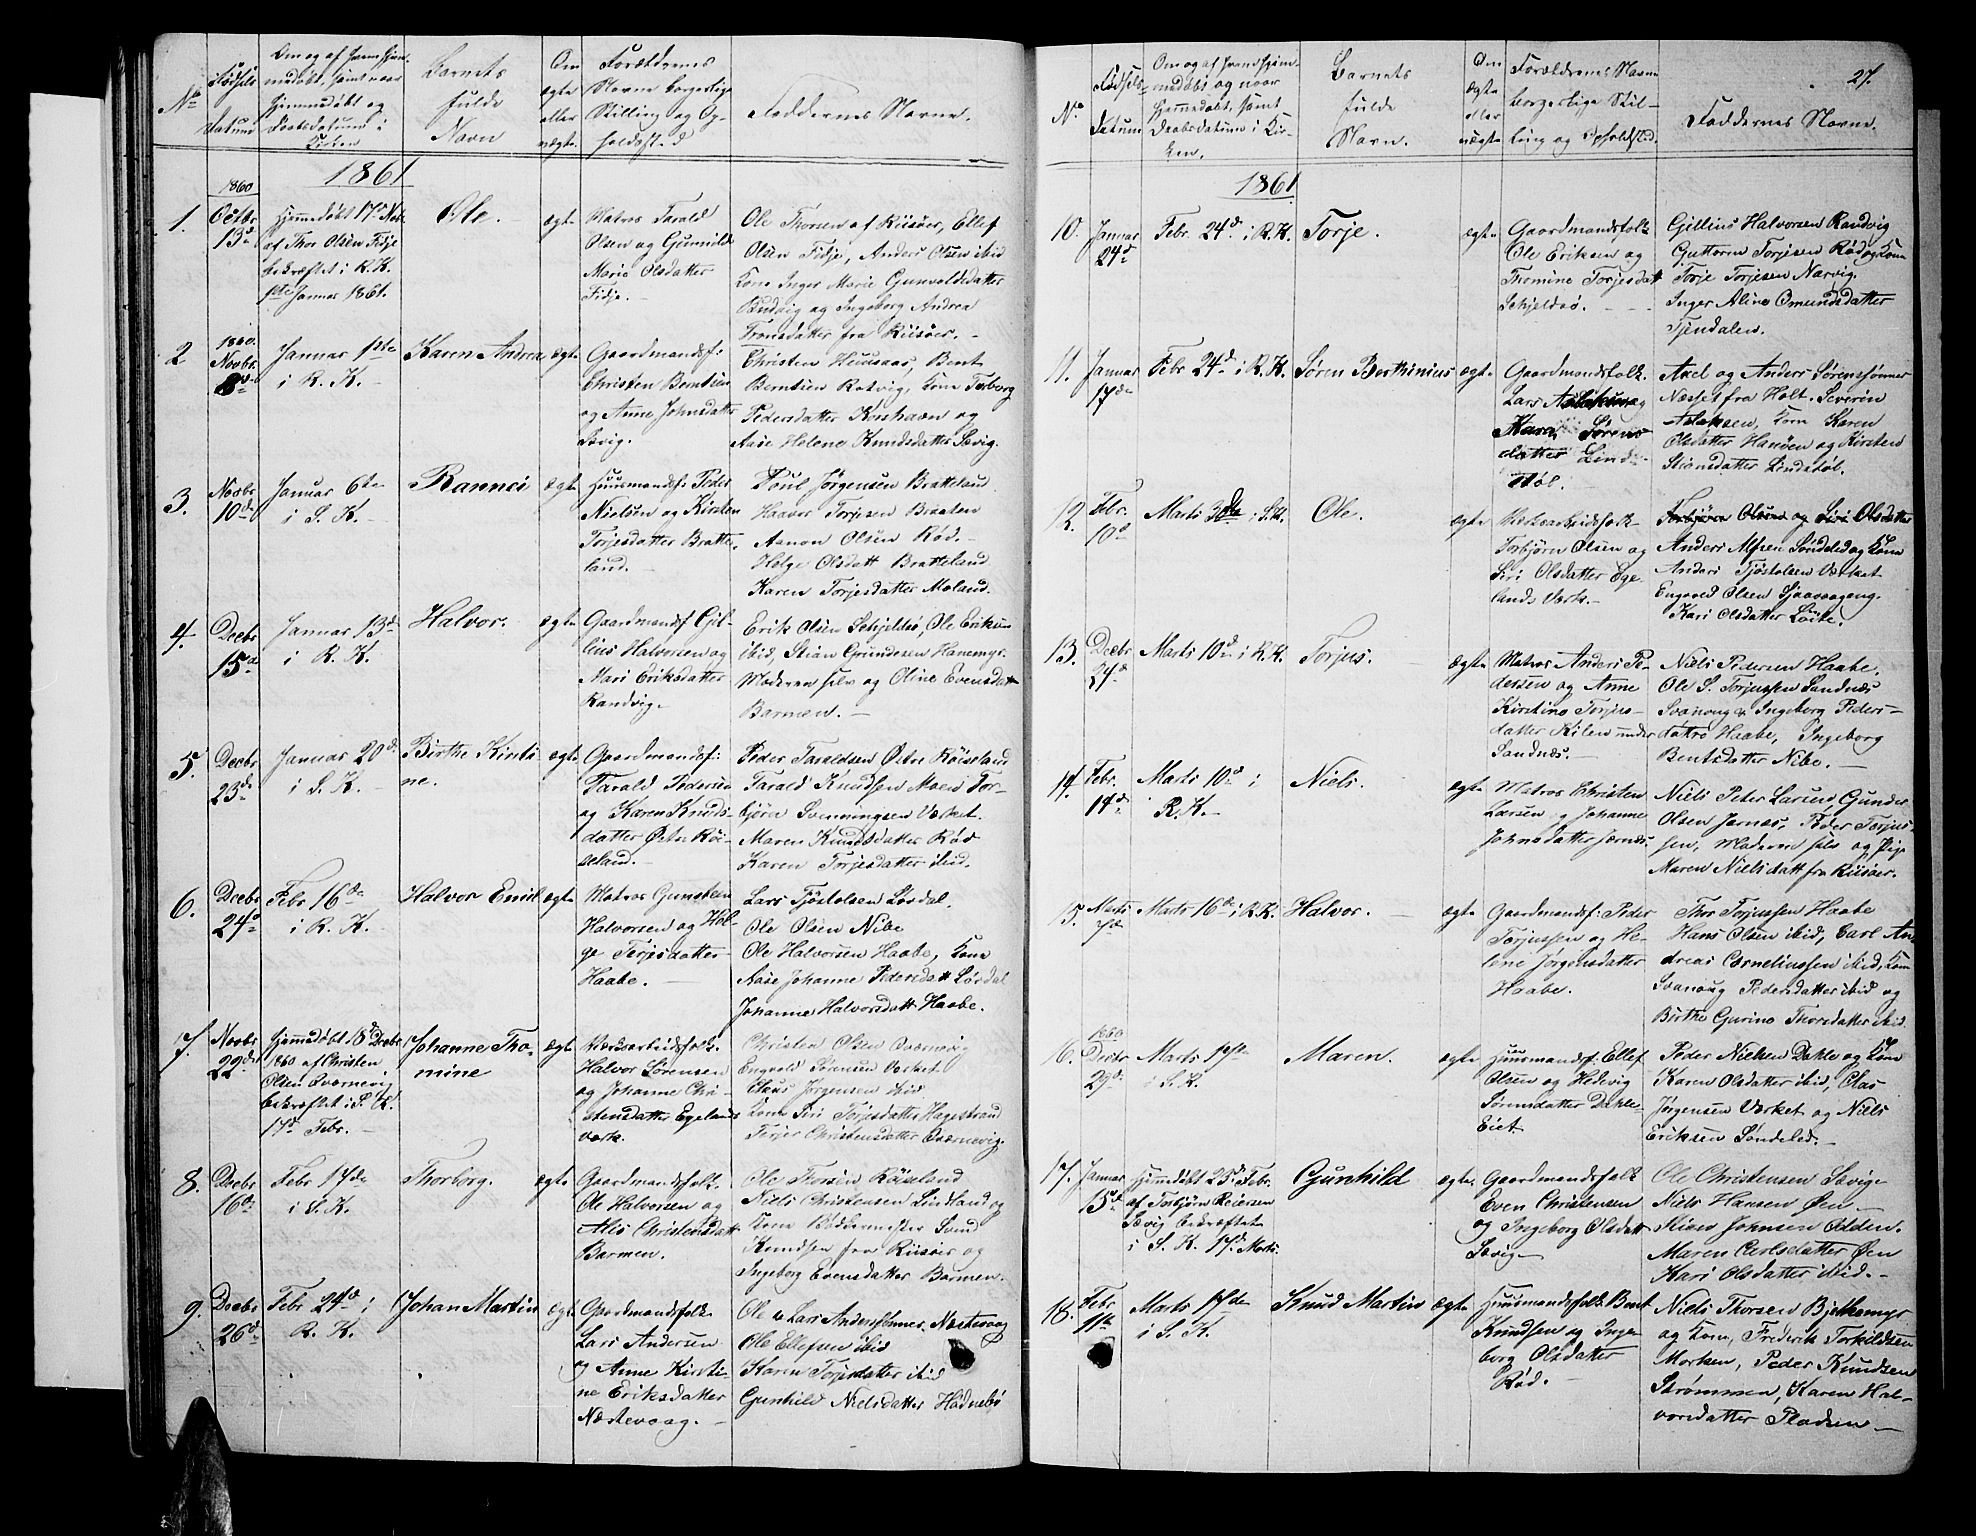 27.
No
Fødsels
datum
Om og af hvem hjem-
medøbt, samt naar
hjemmedøbt og
Daabsdatum i
Kirken
Barnets
fulde
Navn
Om
ægte
eller
uægte
Forældrenes
Navne borgerlige
Stilling og Op-
holdsted
Faddernes Navne.
1861
1.
1860
Octbr
13de
Hjemmedøbt 17de Nov.
af Thor Olsen Fidje
bekræftet i R. K.
1ste Januar 1861.
Ole.
ægte
Matros Tarald
Olsen og Gunnild
Marie Olsdatter
Fidje.
Ole Thorsen af Riisøer, Ellef
Olsen Fidje, Anders Olsen ibid
Kone Inger Marie Gunvoldsdatter
Budvig og Ingeborg Andrea
Tronsdatter fra Riisøer.
2
1860.
Novbr.
8de
Januar 1ste
i R. K.
Karen Andrea
ægte
Gaardmandsf:
Christen Berntsen
og Anne Johnsdatter
Sævig.
Christen Huusaas, Bent
Berntsen Rotvig, Kone Torborg
Pedersdatter Korshavn og
Aase Helene Knudsdatter Sævig.
3.
Novbr
10de
Januar 6te
i S. K.
Rannei
ægte
Huusmandsf: Peder
Nielsen og Kirsten
Torjesdatter Bratte-
land.
Poul Jørgensen Bratteland
Haavor Torjesen Braaten
Aanon Olsen Rød.
Helge Olsdatt Bratteland
Karen Torjesdatter Moland.
4.
Decbr
15de
Januar 13de
i R. K.
Halvor.
ægte
Gaardmandsf Gjl-
lius Halvorsen og
Mari Eriksdatter
Randvig.
Erik Olsen Schjeldsø, Ole Eriksen
ibid, Stian Grundesen Hanemyr
Moderen selv og Oline Evensdatt
Barmen.
5.
Decbr
23de
Januar 20de
i S. K.
Birthe Kirsti-
ne.
ægte
Gaardmandsf:
Tarald Pedersen
og Karen Knuds-
datter Østre Røi-
seland.
Peder Taraldsen Østre Røiseland
Tarald Knudsen Moen Tor-
bjørn Svenningsen Værket.
Maren Knudsdatter Rød
Karen Torjesdatter ibid.
6.
Decbr
24de
Febr 16de
i R. K.
Halvor Emil
ægte
Matros Gunsteen
Halvorsen og Hel-
ge Terjesdatter
Haabe.
Lars Tjøstolsen Lørdal.
Ole Olsen Nibe
Ole Halvorsen Haabe, Kone
Aase Johanne Pedersdatt Lørdal
Johanne Halvorsdatt Haabe.
7.
Novbr
22de
Hjemmedøbt 18de Decbr
1860 af Christen
Olsen Qværnevig
bekræftet i S. K.
17de Febr.
Johanne Tho-
mine
ægte
Værksarbeidsfolk.
Halvor Sørensen
og Johanne Chri-
stensdatter Egelands
værk.
Christen Olsen Qværnevig
Engvold Sørensen Værket
Claus Jørgensen ibid
Kone Siri Torjesdatter Hagestrand
Terjer Christensdatter Qværnevig.
8.
Decbr
16de
Febr 17de
i S. K.
Thorborg.
ægte
Gaardmandsfolk.
Ole Halvorsen og
Alis Christensdatt
Barmen.
Ole Thorsen Røiseland
Niels Christensen Lindland og
Kone Bødkermester Svend
Knudsen fra Riisøer og
Ingeborg Evensdatter Barmen.
9.
Decbr
26de
Febr 24de i
R. K.
Johan Martin
ægte
Gaardmandsfolk.
Lars Andersen
og Anne Kirsti-
ne Eriksdatter
Næstevaag.
Ole & Lars Anderssønner Næstevaag
Ole Ellefsen ibid
Karen Torjesdatter ibid
Gunhild Nielsdatter Hødnebø
No
Fødsels-
datum
Om og af hvem hjem-
medøbt og naar
hjemmedøbt, samt
Daabsdatum i Kir-
ken.
Barnets
fulde
Navn.
Om
ægte
eller
uægte
Forældrenes Navne
borgerlige Stil-
ling og Opholdsted.
Faddernes Navne.
1861
10.
Januar
24de
Febr. 24de i R. K.
Torje.
ægte
Gaardmandsfolk
Ole Eriksen og
Thrmine Torjesdatt
Schjeldsø.
Gjllius Halvorsen Randvig
Guttorm Torjesen Rød og Kone
Torje Torjesen Narvig.
Inger Aline Omundsdatter
Tjendalen.
11.
Januar
17de
Febr 24de i R. K.
Søren Berthinius
ægte
Gaardmandsfolk.
Lars Aslaksen og
Karen Sørens
datter Lind-
støl.
Axel og Anders Sørenssønner
Næsset fra Holt. Severin
Aslaksen, Kone Karen
Olsdatter Hanøen og Kirsten
Stiansdatter Lindstøl.
12.
Febr.
10de
Marts 3de i S. K.
Ole.
ægte
Værksarbeidsfolk
Torbjørn Olsen og
Siri Olsdatter Ege-
lands Værk.
Torbjørn Olsen og Siri Olsdatter
Anders Alfsen Søndeled og Kone
Anders Tjøstolsen Værket
Engvold Olsen Sjaavaageng.
Kari Olsdatter Løite.
13.
Decbr
24de
Marts 10de i R. K.
Torjus.
ægte
Matros Anders Pe-
dersen og Anne
Kirstine Torjus-
datter Kilen under
Sandnæs.
Niels Pedersen Haabe.
Ole S. Torjussen Sandnæs
Svanaug & Ingeborg Peders-
døttre Haabe, Ingeborg
Bentsdatter Nibe.
14.
Febr.
14de
Marts 10de i
R. K.
Niels.
ægte
Matros Christen
Larsen og Johanne
Johnsdatter Jernæs.
Niels Peter Larsen, Gunder
Olsen Jernæs, Peder Torjus-
sen, Moderen selv og Pige
Maren Nielsdatt fra Riisøer.
15.
Marts
7de
Marts 16de i R. K.
Halvor.
ægte
Gaardmandsf: Peder
Torjussen og He-
lene Jørgensdatter
Haabe.
Thor Torjussen Haabe
Hans Olsen ibid, Carl An-
dreas Corneliussen ibid, Kone
Svanaug Pedersdatter ibid og
Birthe Gurine Thorsdatter ibid.
6.
1860
Decbr
29de
Marts 17de
i S. K.
Maren.
ægte
Huusmandsf. Ellef
Olsen og Hedevig
Sørensdatter Dahle-
Eiet.
Peder Nielsen Dahle og Kone
Karen Olsdatter ibid, Clas
Jørgensen Værket og Niels
Eriksen Søndeled.
17.
Januar
15de
Hjemmedøbt 25de Febr.
af Torbjørn Reiersen
Sævig bekræftet
i S. K. 17de Marts.
Gunhild
ægte.
Gaardmandsfolk
Even Christensen
og Ingeborg Olsdatt
Sævig
Ole Christensen Sævig
Niels Hansen Øen
Johnsen Odden.
Maren Carlsdatter Øen
Kari Olsdatter ibid.
18.
Febr
11te
Marts 17de
i S. K.
Knud Martin
ægte
Huusmandsfolk Bent
Knudsen og Inge-
borg Olsdatter
Rød.
Niels Thorsen Bjelkemyr
og Kone, Frederik Torkildsen
Morksen, Peder Knudsen
Strømmen, Karen Hal-
vorsdatter Pladsen